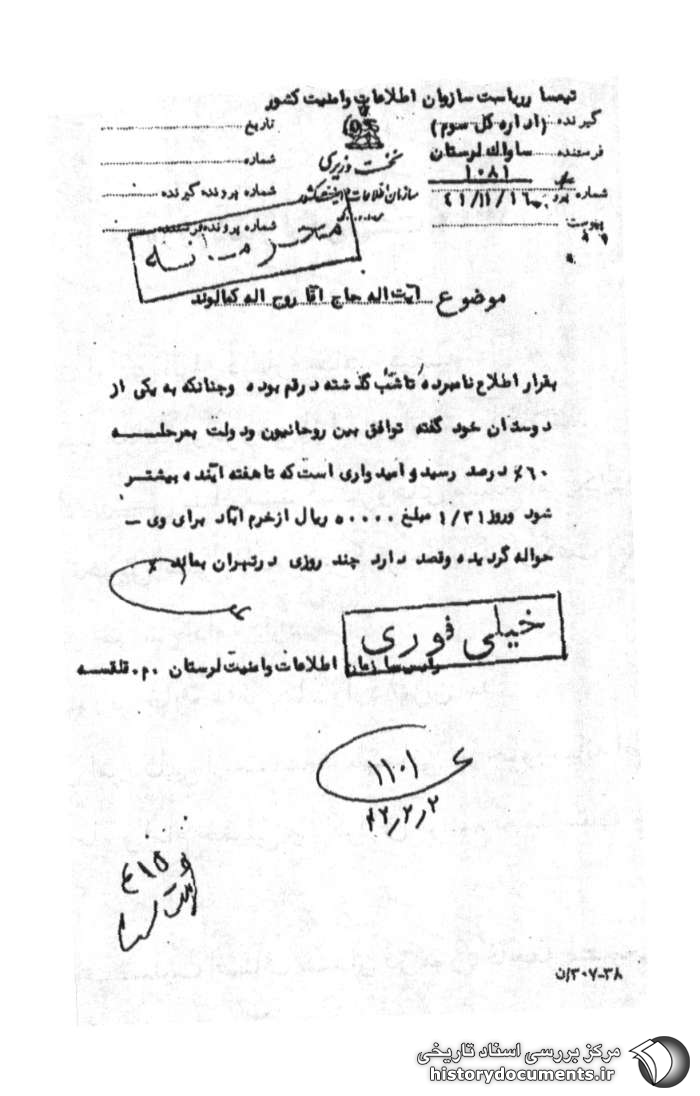 تیمسار ریاست سازمان اطلاعات وامنیت کشور
گیرنده (اداره کل سوم)
فرستنده ساواک لرستان
۱۰۸۱
شماره
پیوست
نخست وزیری
سازمان اطلاعات و امنیت کشور
تاریخ
شماره
شماره پرونده گیرنده
شماره پرونده فرستنده
محرمانه
موضوع آیت اله حاج آقا روح اله کمالوند
بقرار اطلاع نامبرده تا شب گذشته درقم بوده وچنانکه به یکی از
دوستان خود گفته توافق بین روحانیون ودولت بمرحلــه
۶۰٪ درصد رسید و امیدواری است که تا هفته آینده بیشتــر
شود وروز ۱/۳۱ مبلغ ۵۰۰۰۰ ریال ازخرم آباد برای وی –
حواله گردیده وقصد دارد چند روزی درتهران بماند
خیلی فوری
رئیس سازمان اطلاعات وامنیت لرستان
۱۱۰۱
۴۲٫۲٫۲
۳۰۷-۳۸/ن
مرکز بررسی اسناد تاریخی
historydocuments.ir